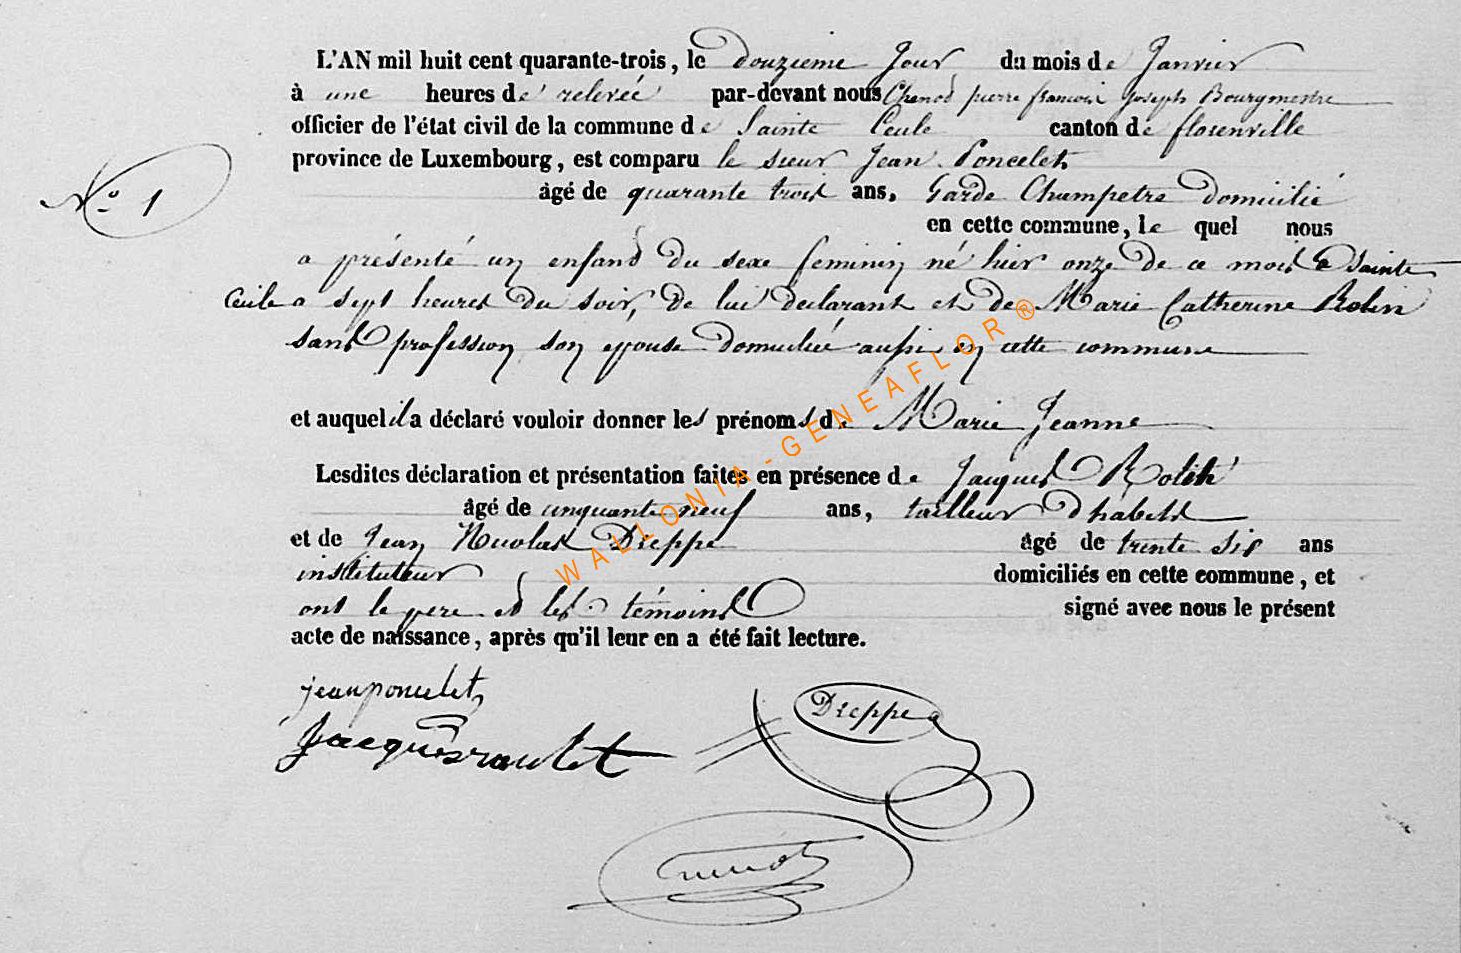 L'AN mil huit cent quarante-trois, le douzieme Jour du mois de Janvier
à une heures de relevée par-devant nous Chenot pierre francois Joseph Bourgmestre
officier de l'état civil de la commune de Sainte Cecile canton de florenville
province de Luxembourg, est comparu le sieur Jean Poncelet
N.o 1
âgé de quarante trois ans, Garde Champetre domicilié
en cette commune, le quel nous
a présenté un enfant du sexe feminin né hier onze de ce mois a Sainte
Cecile a sept heures du soir, de lui declarant et de Marie Catherine Robin
sans profession son epouse domiciliée aussi en cette commune
et auquel il a déclaré vouloir donner les prénoms de Marie Jeanne
Lesdites déclaration et présentation faites en présence de Jacques
âgé de cinquante neuf ans, tailleur d'habits
et de Jean Nicolas Dieppe âgé de trente six ans
instituteur domiciliés en cette commune, et
ont le pere et les témoins signé avec nous le présent
acte de naissance, après qu'il leur en a été fait lecture.
jean poncelet
Dieppe
Jacques raulet
WALLONIA-GENEAFLOR®